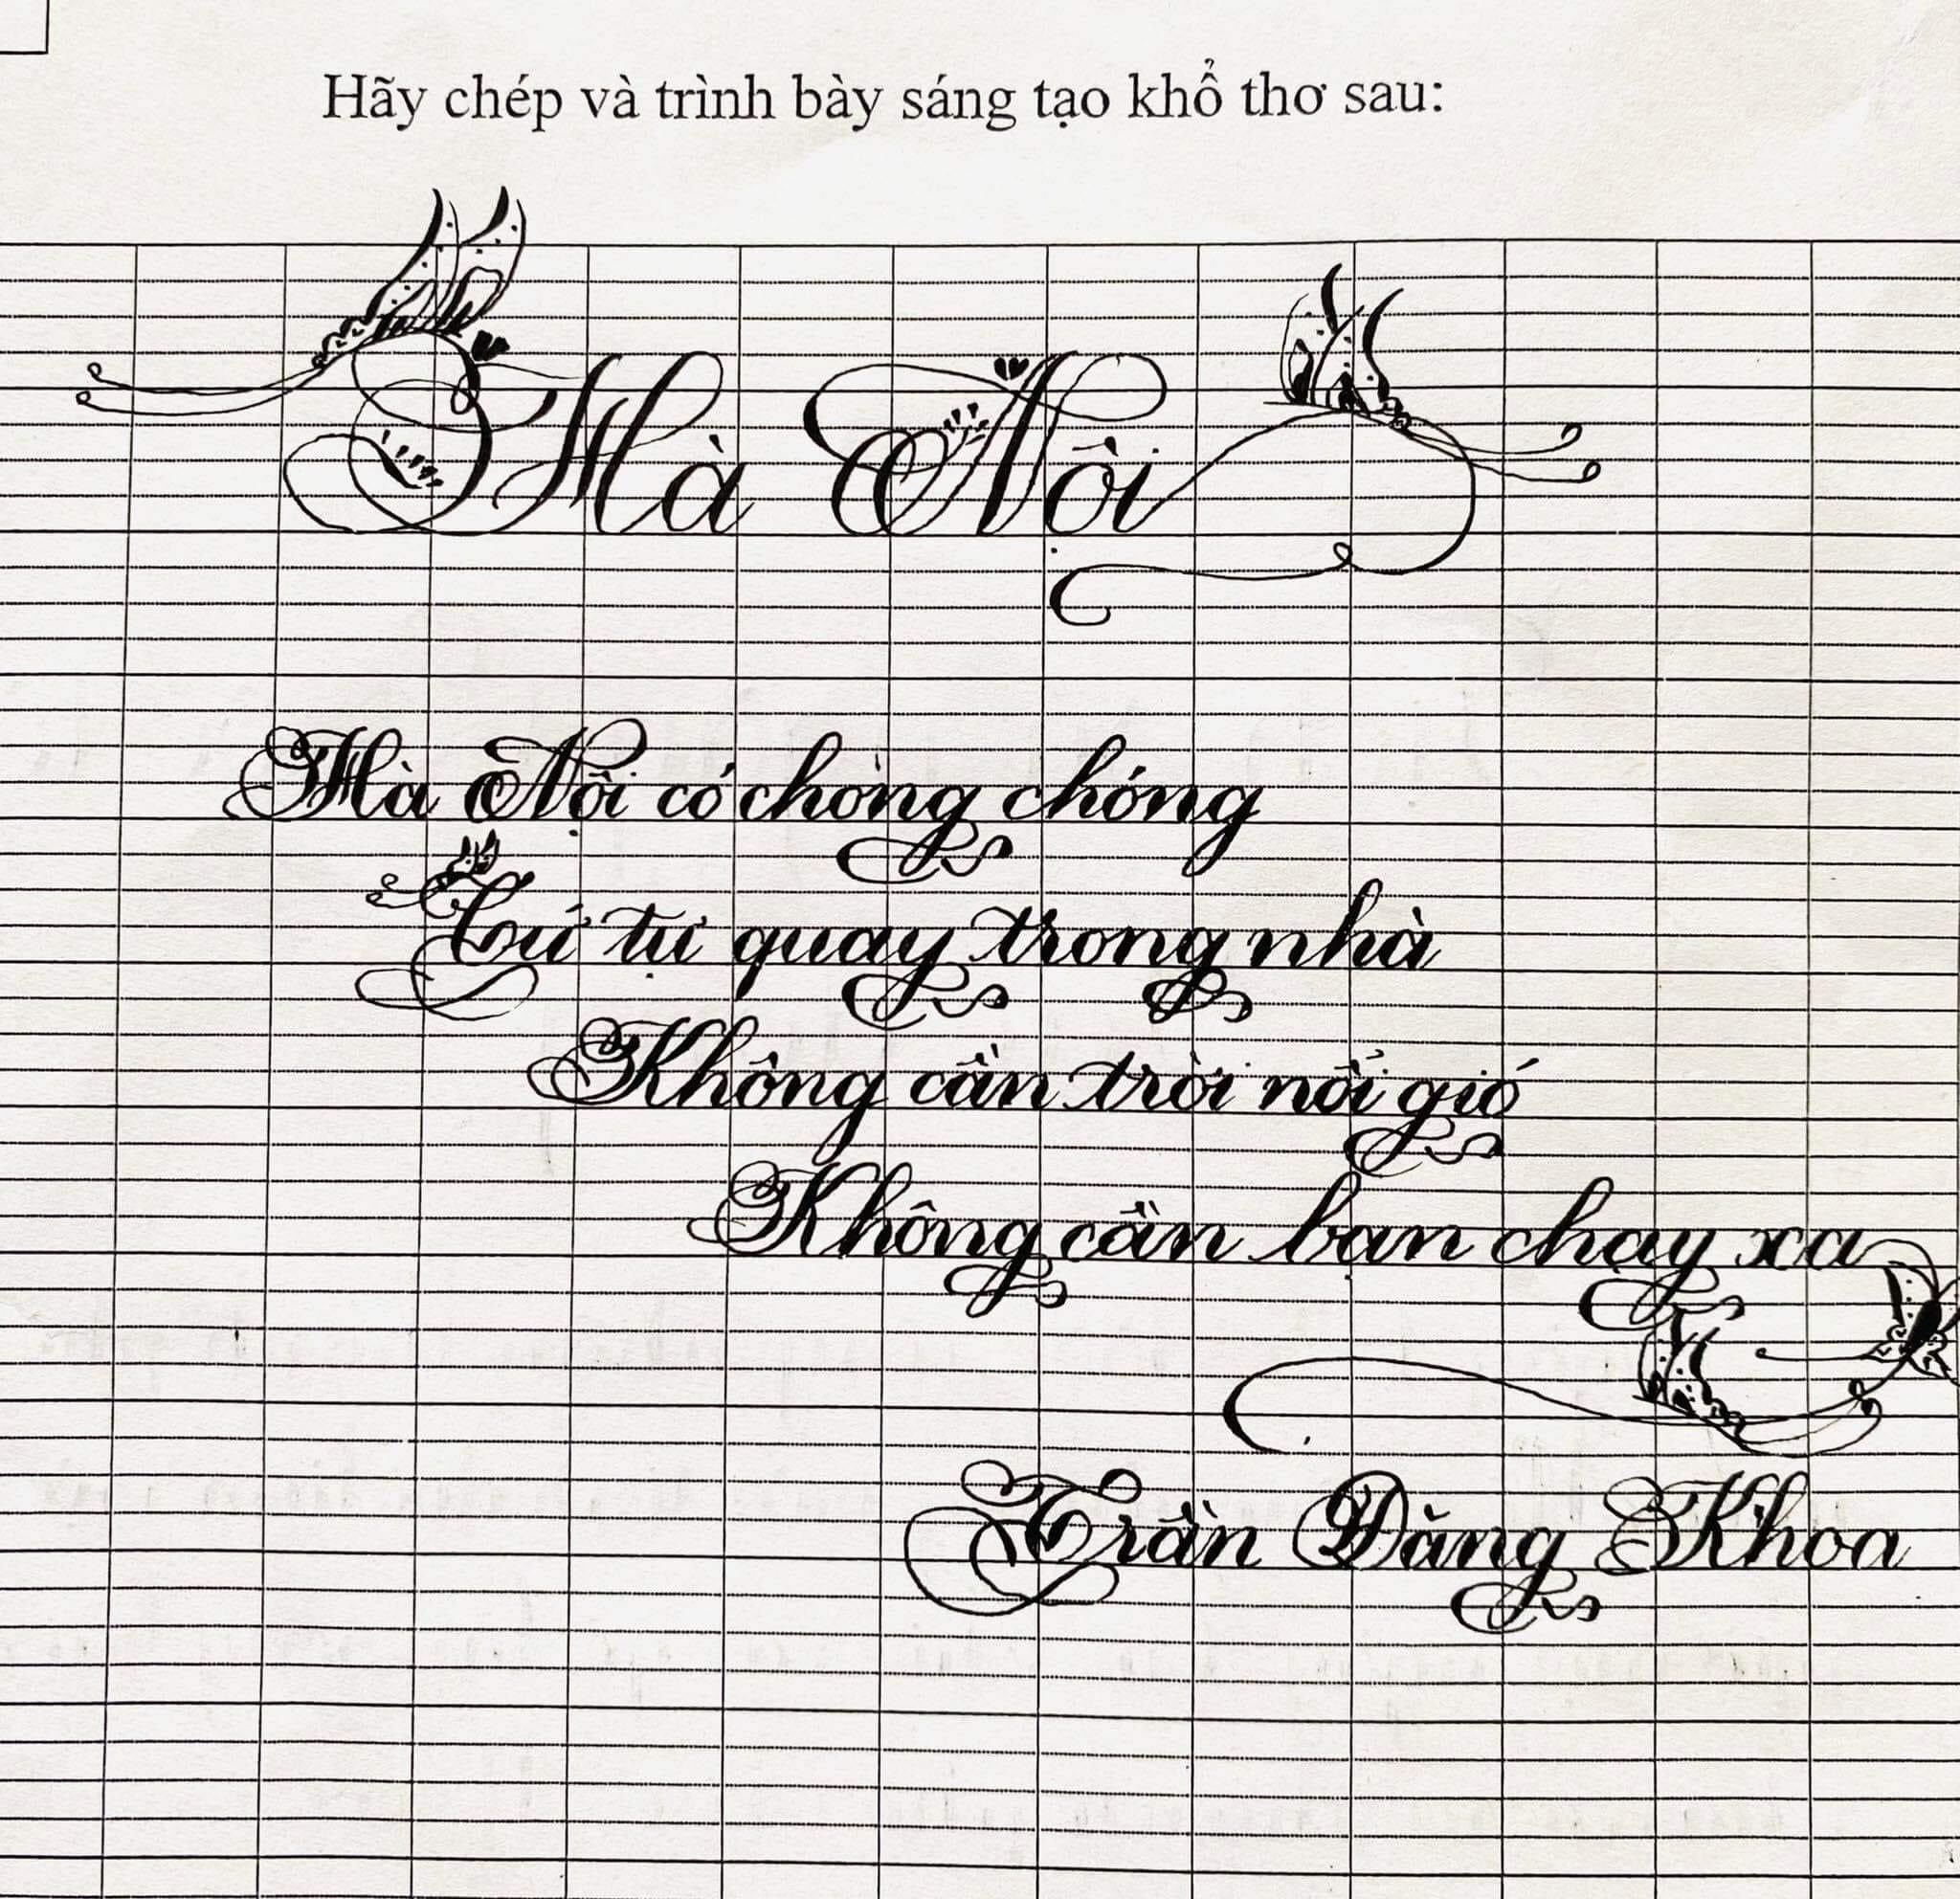 Hãy chép và trình bày sáng tạo khổ thơ sau:
Hà Nội
Hà Nội có chong chóng
Cứ tự quay trong nhà
Không cần trời nổi gió
Không cần bạn chạy xa
Trần Đăng Khoa